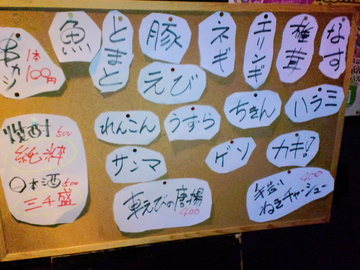 串カツ
1本
100円
魚
とまと
豚
ネギ
エリンギ
椎茸
なす
えび
れんこん
うずら
ちきん
ハラミ
サンマ
ゲソ
カキ!
焼酎 500
純米
日本酒 500
三千盛
東えびの唐揚
400
400
ねぎチャーシュー